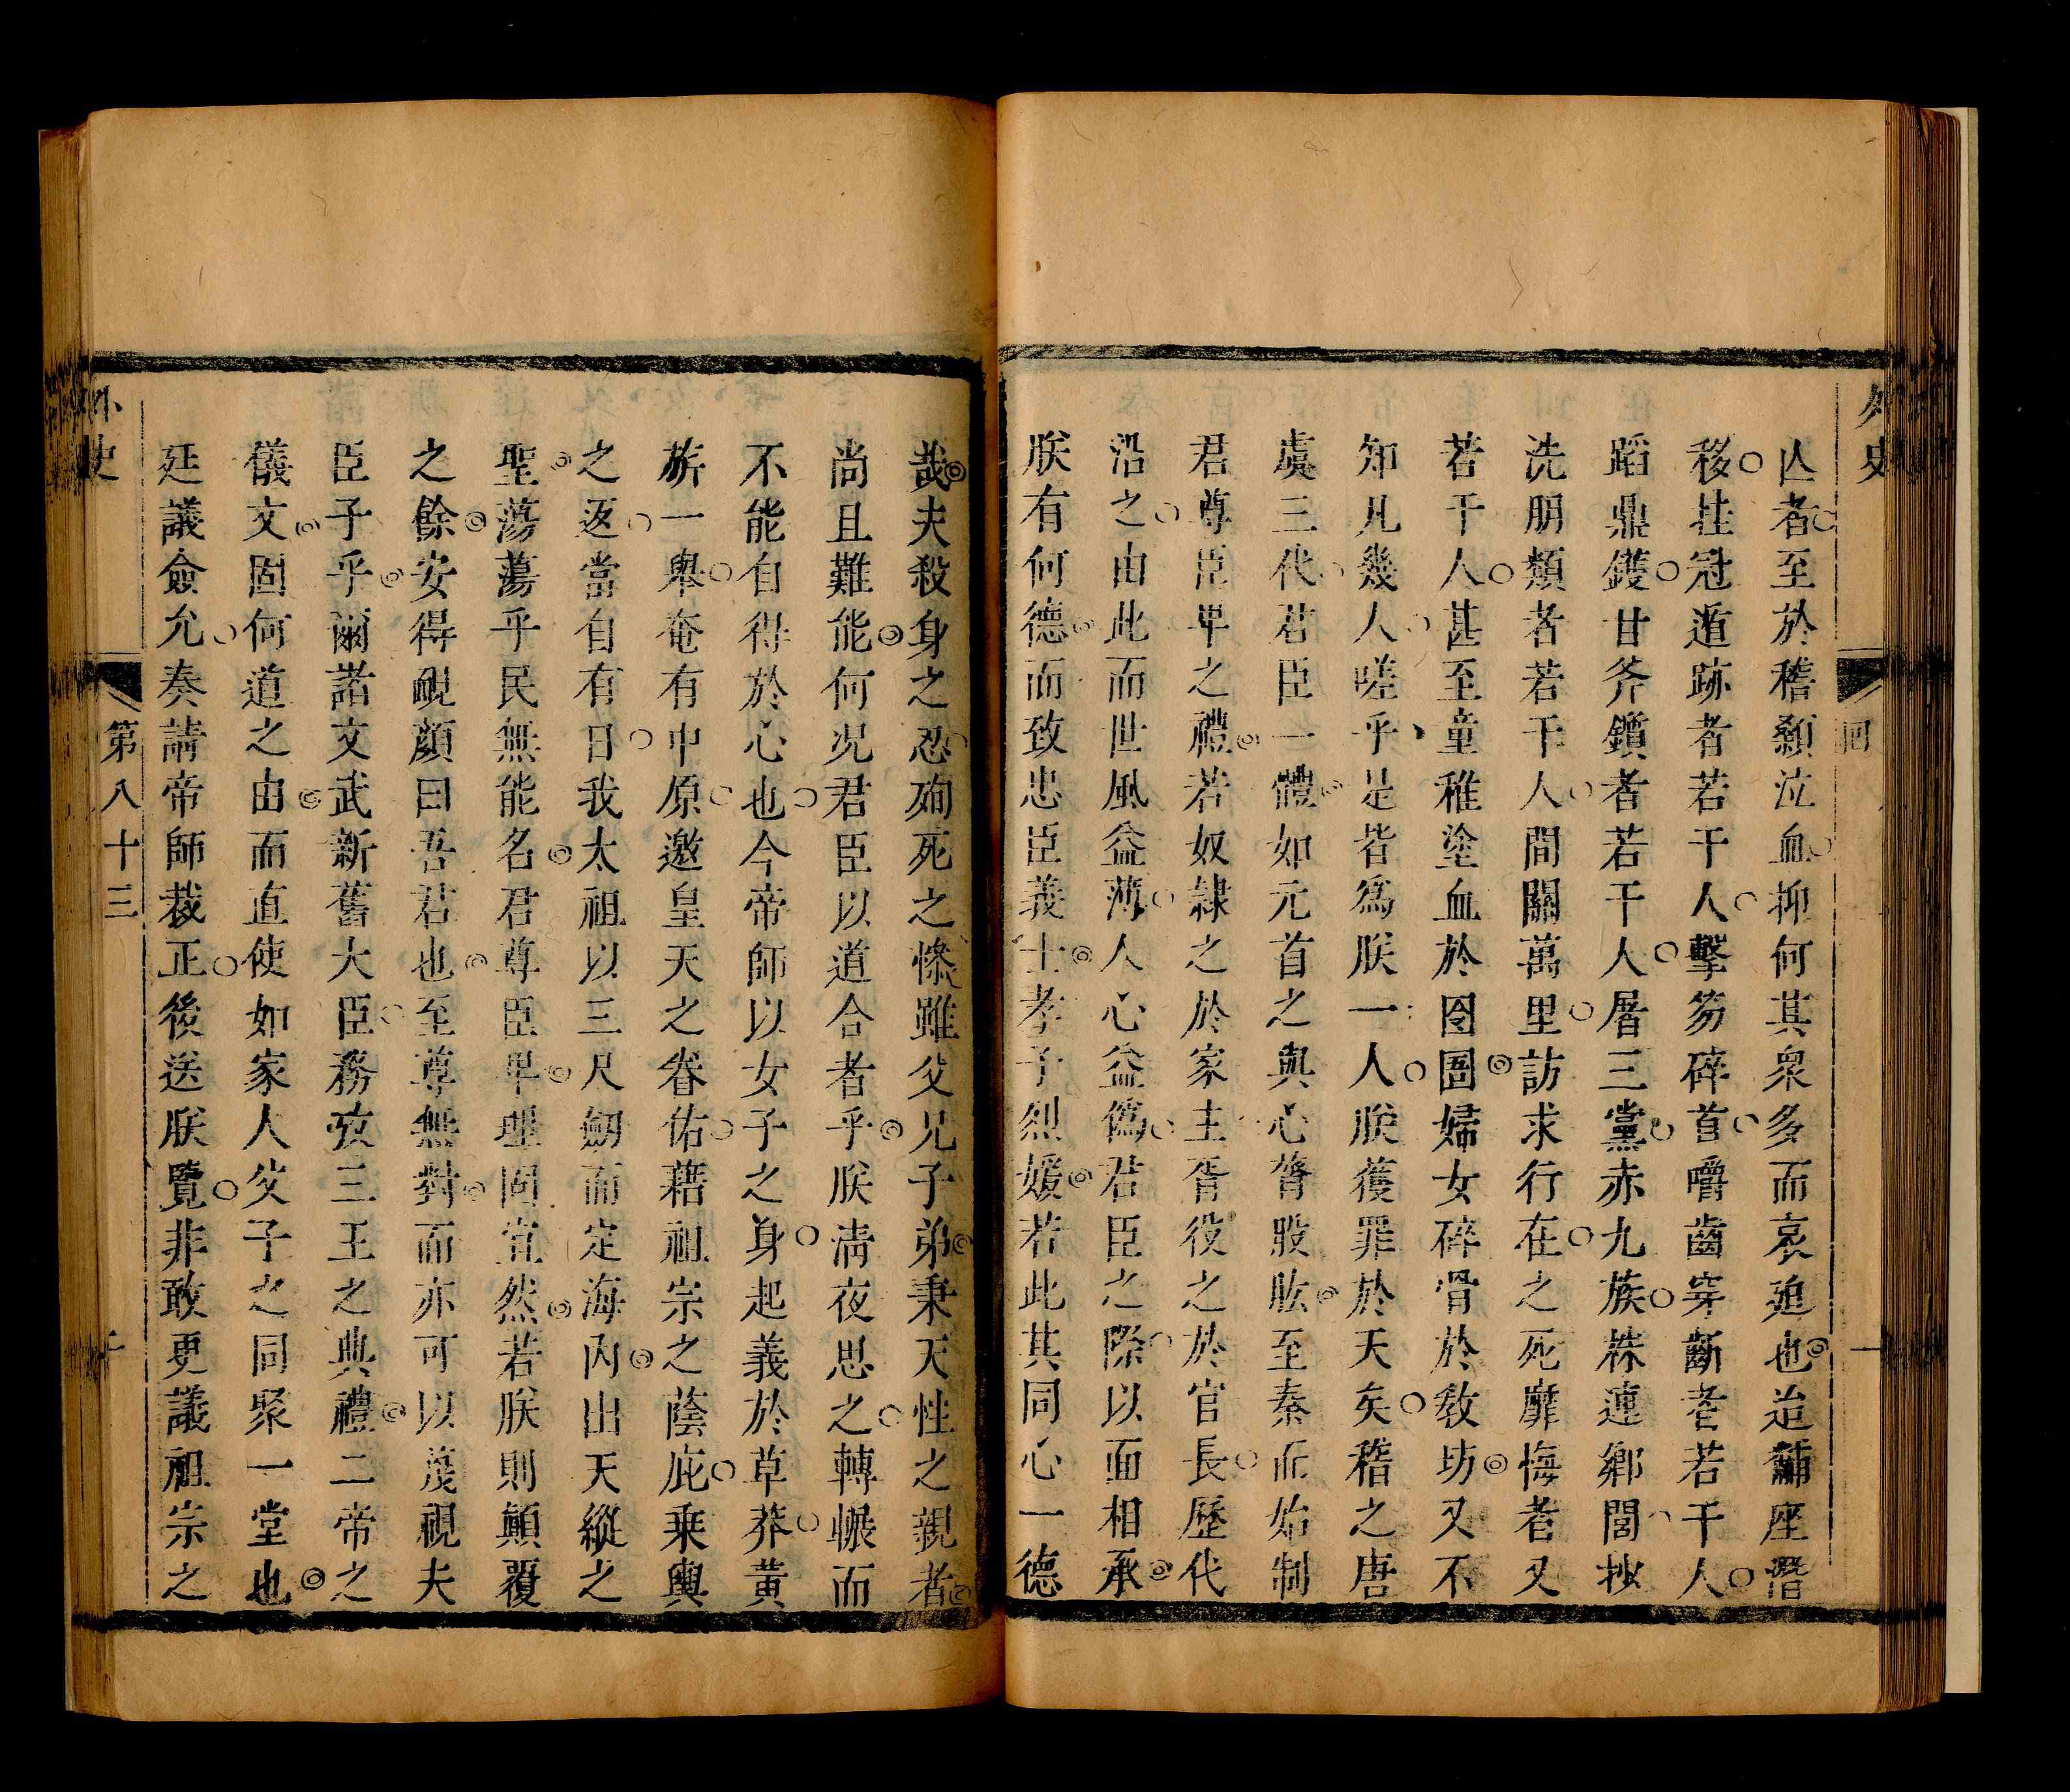 外史
回
一
亾者至於稽顙泣血抑何其衆多而哀廹也迨黼座潛
移挂冠遁跡者若干人擊笏碎首嚼齒穿齗者若干人
蹈鼎鑊甘斧鑕者若干人屠三黨赤九族株連鄉閭抄
洗朋類者若干人間關萬里訪求行在之死靡悔者又
若干人甚至童稚塗血於囹圄婦女碎骨於敎坊又不
知凡幾人嗟乎是皆爲朕一人朕獲罪於天矣稽之唐
虞三代君臣一體如元首之與心膂股肱至秦而始制
君尊臣卑之禮若奴隸之於家主胥役之於官長歷代
沿之由此而世風益薄人心益僞君臣之際以面相承
朕有何德而致忠臣義士孝子烈媛若此其同心一德
哉夫殺身之忍殉死之慘雖父兄子弟秉天性之親者
尚且難能何况君臣以道合者乎朕淸夜思之轉輾而
不能自得於心也今帝師以女子之身起義於草莽黃
旂一舉奄有中原邀皇天之眷佑藉祖宗之蔭庇乗輿
之返當自有日我太祖以三尺劒而定海內出天縱之
聖蕩蕩乎民無能名君尊臣卑理固宜然若朕則顚覆
之餘安得覥顏曰吾君也至尊無對而亦可以蔑視夫
臣子乎爾諸文武新舊大臣務攷三王之典禮二帝之
儀文固何道之由而直使如家人父子之同聚一堂也
廷議僉允奏請帝師裁正後送朕覽非敢更議祖宗之
外史
第八十三